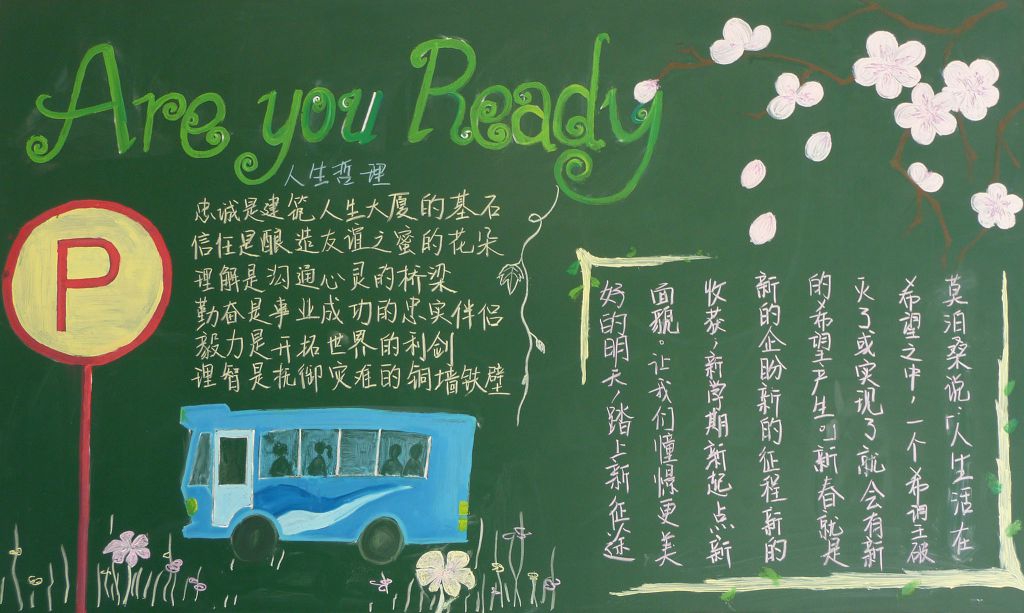 Are you Ready
人生哲理
忠诚是建筑人生大厦的基石
信任是酿造友谊之蜜的花朵
理解是沟通心灵的桥梁
勤奋是事业成功的忠实伴侣
毅力是开拓世界的利剑
理智是抗御灾难的铜墙铁壁
P
莫泊桑说:“人生活在
希望之中,一个希调王破
灭了或实现了就会有新
的希望产生。”新春就是
新的企盼新的征程新的
收获,新学期新起点新
面貌。让我们憧憬更美
好的明天,踏上新征途